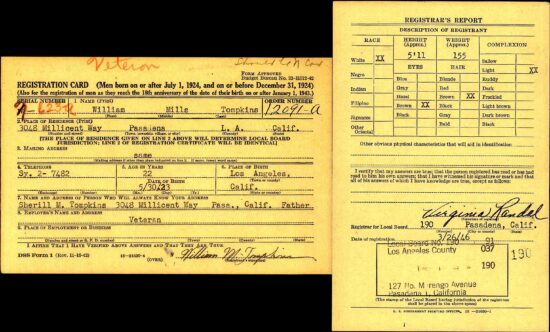 Veteran
Should be N Card
FORM APPROVED
REGISTRATION CARD (Men born on or after July 1, 1924, and on or before December 31, 1924)
(Also for the registration of men as they reach the 18th anniversary of the date of their birth on or after January 1, 1943.)
SERIAL NUMBER
1. NAME (Print)
William Mills Tompkins
(First) (Middle) (Last)
12091-A
2. PLACE OF RESIDENCE (Print)
3048 Millicent Way Pasadena L. A. Calif.
[THE PLACE OF RESIDENCE GIVEN ON LINE 2 ABOVE WILL DETERMINE LOCAL BOARD
JURISDICTION; LINE 2 OF REGISTRATION CERTIFICATE WILL BE IDENTICAL]
3. MAILING ADDRESS
same
4. TELEPHONE
5. AGE IN YEARS
6. PLACE OF BIRTH
Sy. 2-7482
22
Los Angeles,
DATE OF BIRTH
5/30/23
Calif.
7. NAME AND ADDRESS OF PERSON WHO WILL ALWAYS KNOW YOUR ADDRESS
Sherill M. Tompkins 3048 Millicent Way Pasa., Calif. Father
8. EMPLOYER'S NAME AND ADDRESS
Veteran
9. PLACE OF EMPLOYMENT OR BUSINESS
I AFFIRM THAT I HAVE VERIFIED ABOVE ANSWERS AND THAT THEY ARE TRUE.
DSS Form 1 (OVER)
William M. Tompkins
REGISTRAR'S REPORT
DESCRIPTION OF REGISTRANT
RACE
HEIGHT (Approx.)
WEIGHT (Approx.)
COMPLEXION
White XX
5'11
155
Sallow
EYES
HAIR
Light XX
Negro
Blue
Blonde
Ruddy
Indian
Gray
Red
Dark
Hazel
Brown XX
Freckled
Filipino
Brown XX
Black
Light brown
Black
Gray
Dark brown
Other
Oriental
Bald
Black
Other obvious physical characteristics that will aid in identification
I certify that my answers are true; that the person registered has read or has had
read to him his own answers; that I have witnessed his signature or mark and that
all of his answers of which I have knowledge are true, except as follows:
Virginia Randal
Registrar for Local Board 190 Pasadena, Calif.
Date of registration 2/26/46
Local Board No. 190 91
Los Angeles County 037
190
190
Pasadena 1, California
(The stamp of the Local Board having jurisdiction of the registrant
shall be placed in the above space)
U. S. GOVERNMENT PRINTING OFFICE